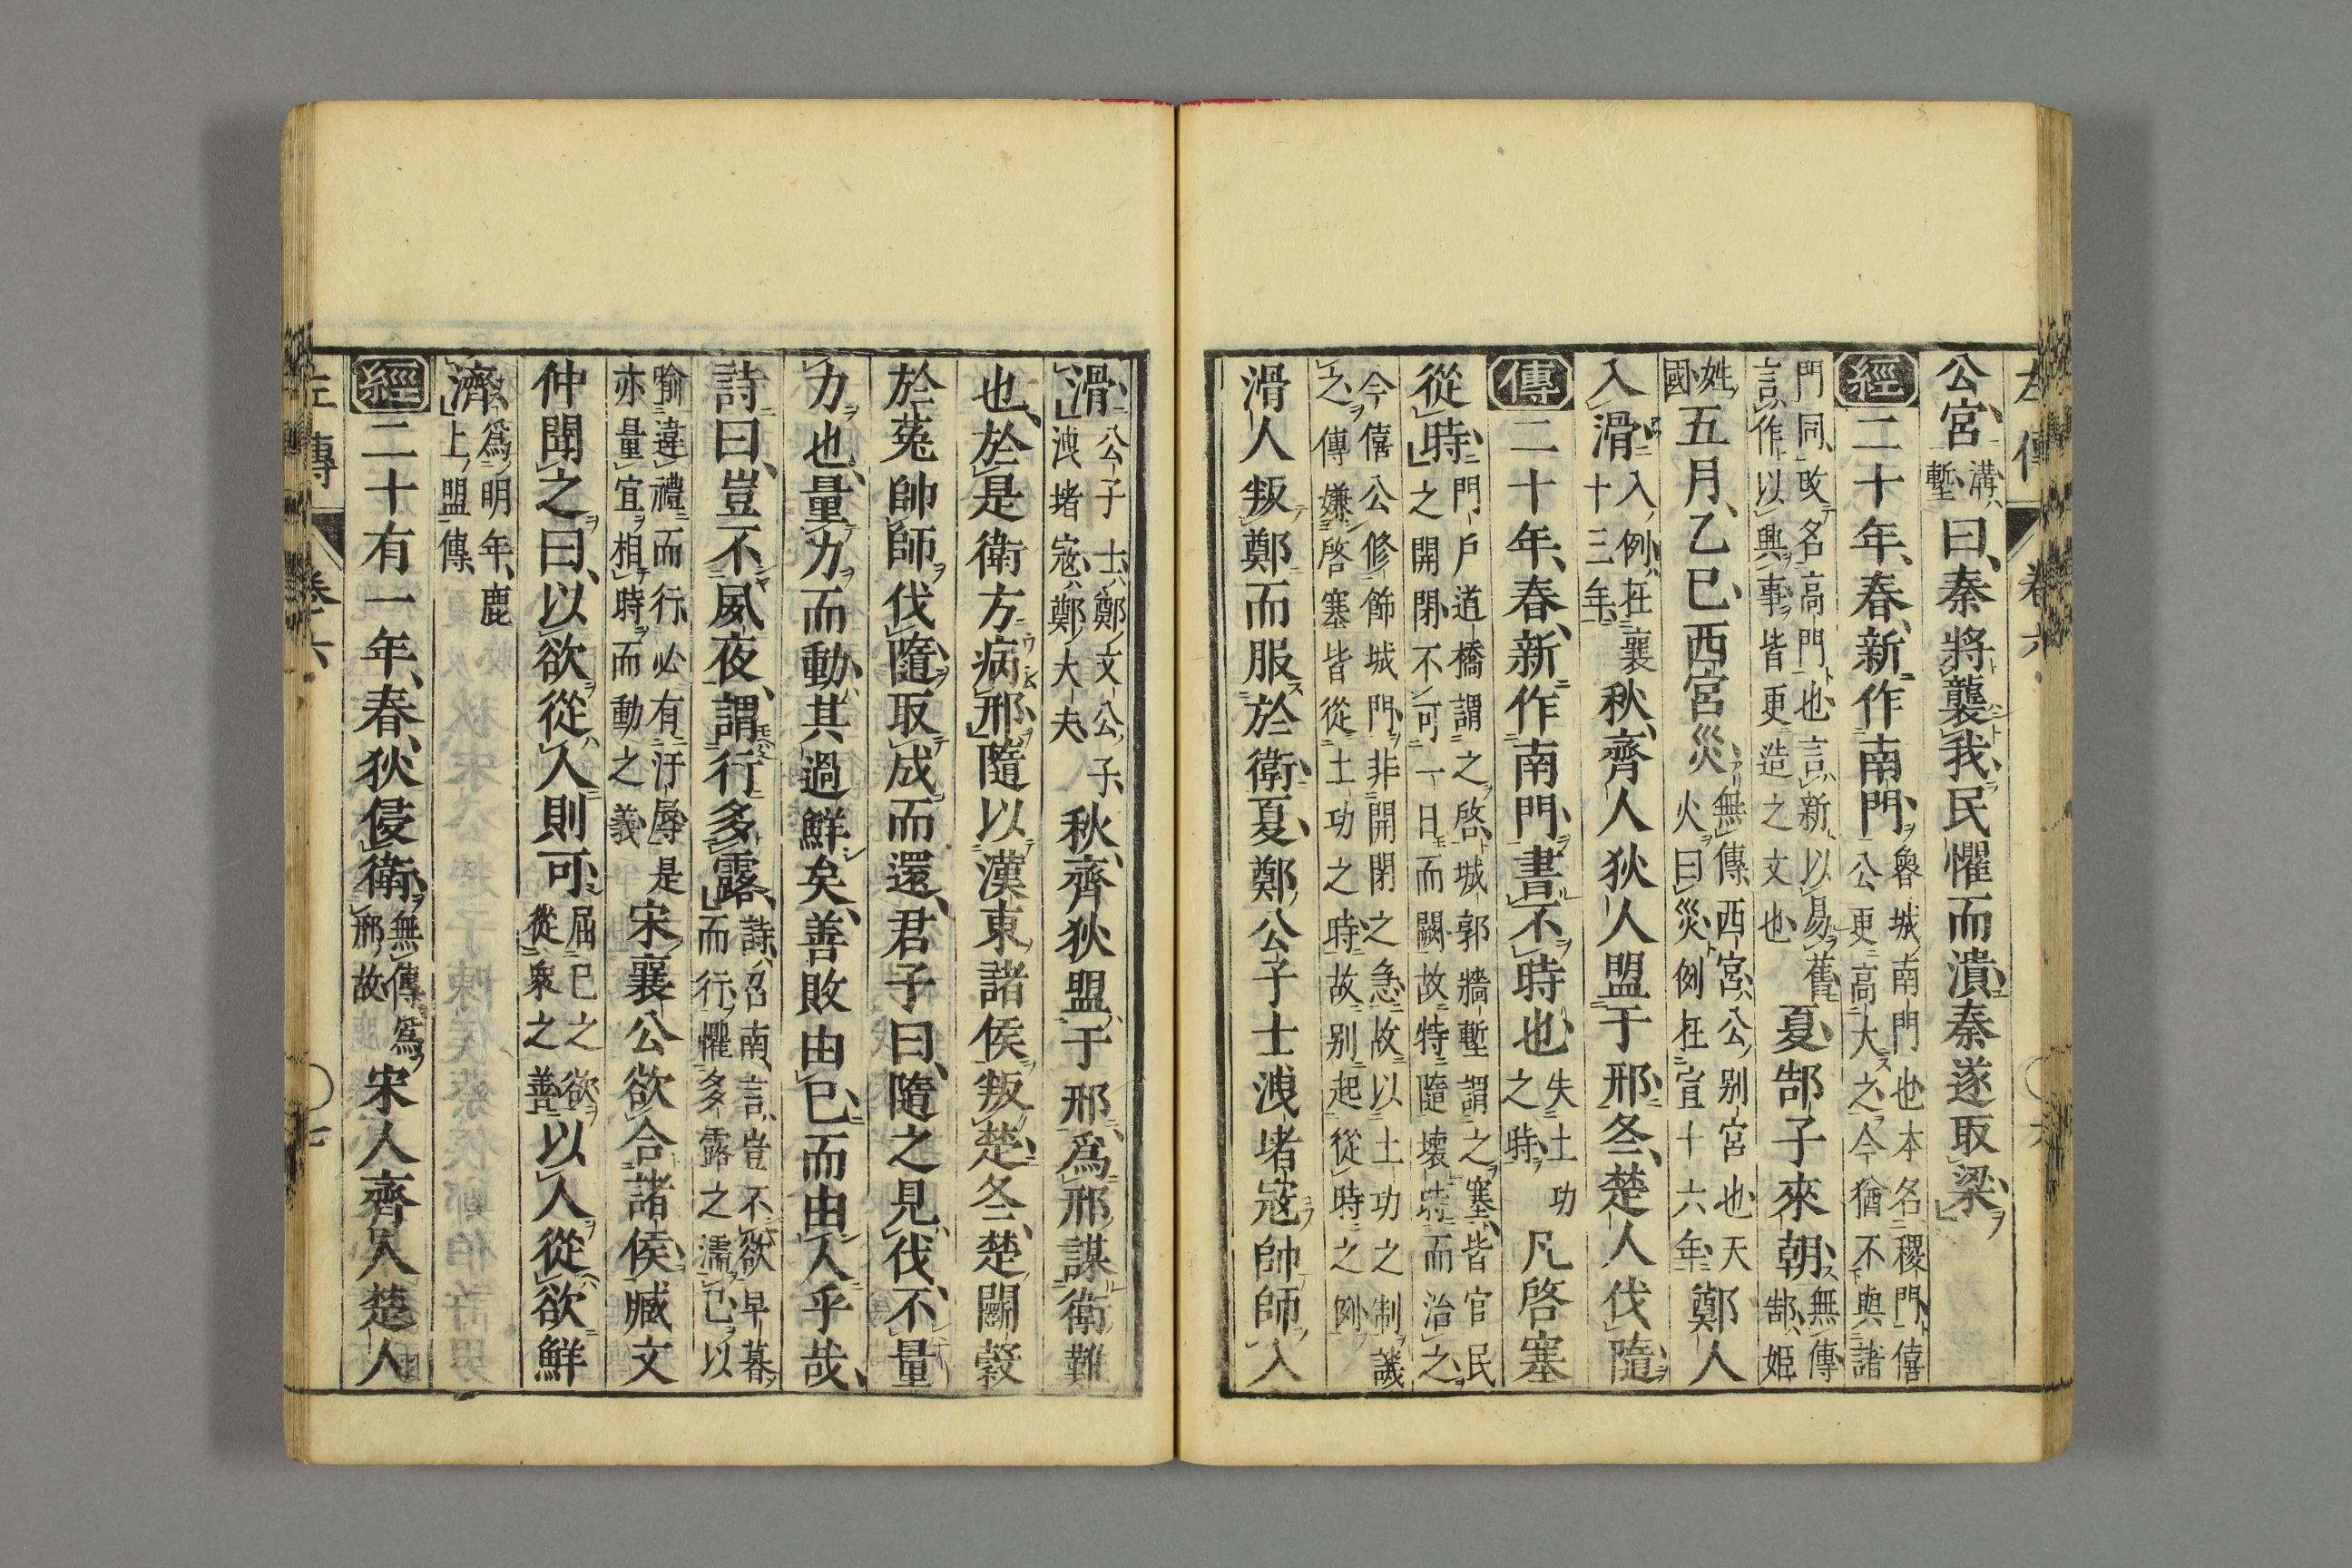 左傳 卷六
公宮溝塹曰秦將襲我民懼而潰秦遂取梁
經二十年春新作南門魯城南門也本名稷門僖公更高大之今猶不與諸
門同改名高門也言新以易舊言作以興事皆更造之文也夏郜子來朝無傳郜姬
姓國五月乙巳西宮災無傳西宮公別宮也天火曰災例在宣十六年鄭人
入滑入例在襄十三年秋齊人狄人盟于邢冬楚人伐隨
傳二十年春新作南門書不時也失土功之時凡啓塞
從時門戶道橋謂之啓城郭牆塹謂之塞皆官民之開閉不可一日而闕故特隨壞時而治之
今僖公修飾城門非開閉之急故以土功之制譏之傳嫌啓塞皆從土功之時故別起從時之例
滑人叛鄭而服於衛夏鄭公子士洩堵寇帥師入
滑公子士鄭文公子洩堵寇鄭大夫秋齊狄盟于邢爲邢謀衛難
也於是衛方病邢隨以漢東諸侯叛楚冬楚鬬穀
於菟帥師伐隨取成而還君子曰隨之見伐不量
力也量力而動其過鮮矣善敗由己而由人乎哉
詩曰豈不夙夜謂行多露詩召南言豈不欲早暮而行懼多露之濡己以
喻違禮而行必有汙辱是亦量宜相時而動之義宋襄公欲合諸侯臧文
仲聞之曰以欲從人則可屈己之欲從衆之善以人從欲鮮
濟爲明年鹿上盟傳
經二十有一年春狄侵衛無傳爲邢故宋人齊人楚人
左傳 卷六 七